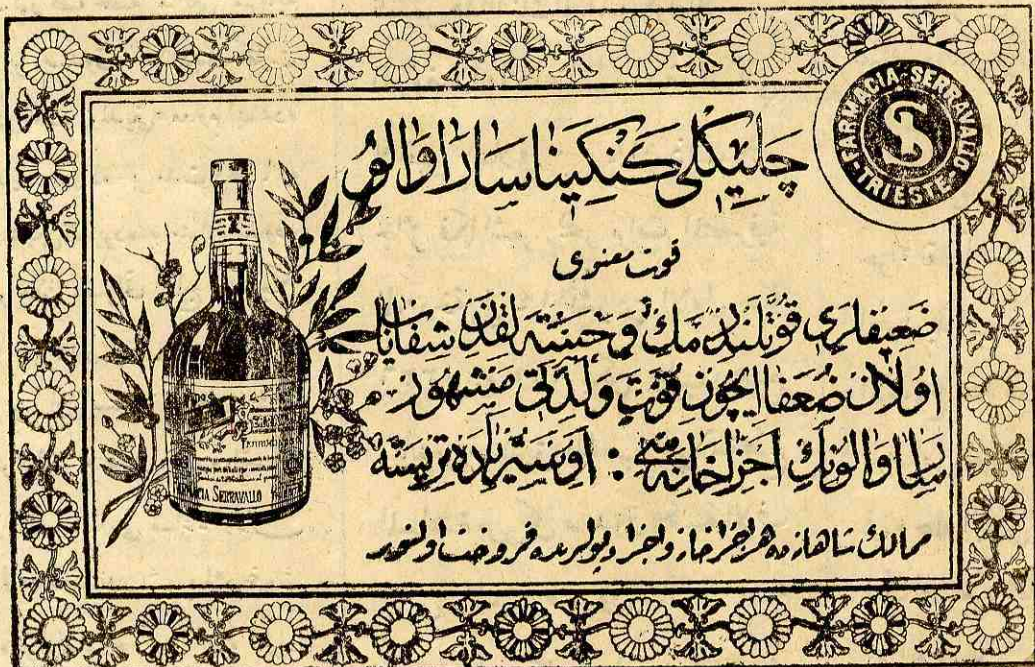 FARMACIA-SERRAVALLO
-TRIESTE-
S
چلیكلی كنكینا ساراوالو
قوت معنوی
ضعیفلری قوتلندرمك و خسته لقدن شفایاب
اولان ضعفا ایچون قوت و لذتی مشهور
ساراوالونك اجزاخانه سی : اوستریاده تریسته
ممالك شاهانه ده هر اجزاخانه و اجزا دپولرنده فروخت اولنمقده در
SERRAVALLO